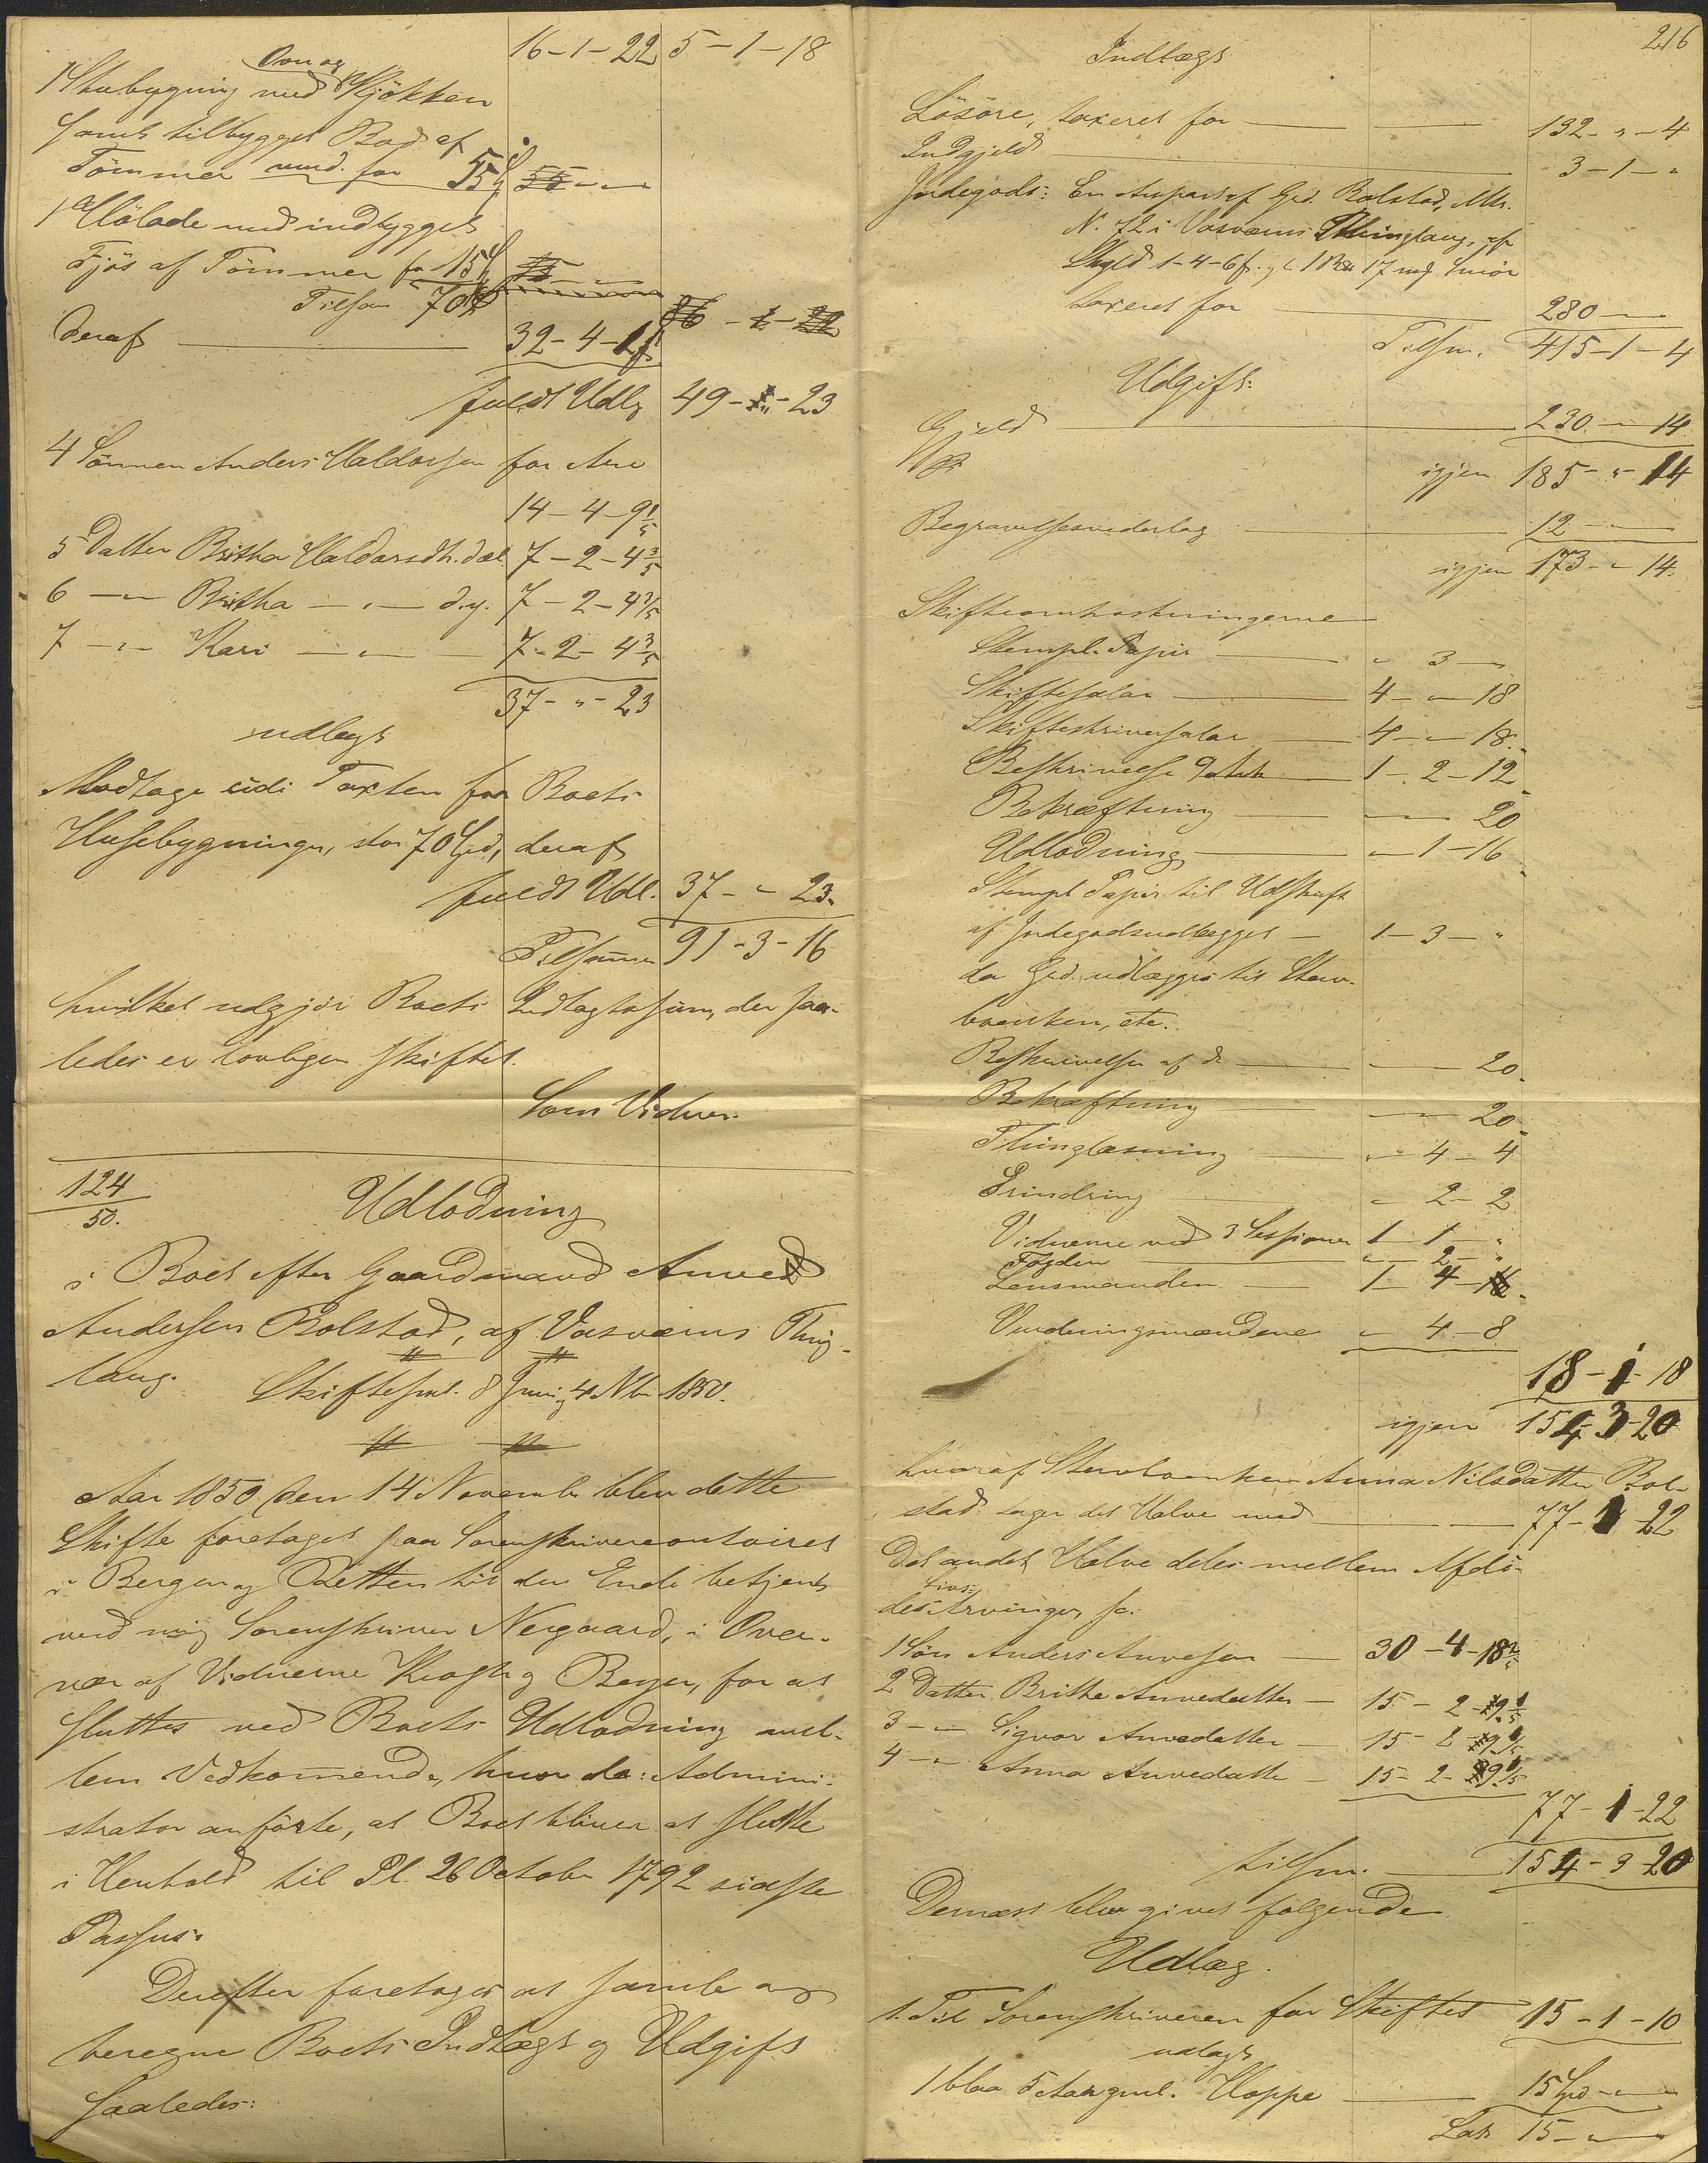 16-1-22 5-1-18
Ovn og
1 Stubygning med Kjökken
samt tilbygget Bod af
Tömmer vurd. for 55
1 Hölade med indbygget
Fjös af Tömmer for 15
Tilsam 70
deraf 32-4-1
fuldt Udlg 49-"-23
4 Sönnen Anders Haldorsen for Arv
14-4-9 1/5
5 Datter Britha Haldorsdtr. d.æl. 7-2-4 3/5
6 -"- Britha -"- d.y. 7-2-4 3/5
7 -"- Kari -"- 7-2-4 3/5
37-"-23
udlagt
Modtage udi Taxten for Boets
Husebygninger, stor 70 Spd, deraf
fuldt Udl. 37-"-23.
Tilsammen 91-3-16
hvilket udgjör Boets Indtægtssum, der saa-
ledes er lovligen skiftet.
Som Vidner.
124
50.
Udlodning
i Boet efter Gaardmand Anved
Andersen Bolstad, af Vasværns Thing-
laug. Skiftesml. 8 Juni, 4 Nbr 1850.
Aar 1850 den 14 November blev dette
Skifte foretaget paa Sorenskrivercontoiret
i Bergen og Retten til den Ende betjent
ved mig Sorenskriver Nergaard, i Over-
vær af Vidnerne Krogh og Beyer, for at
sluttes ved Boets Udlodning mel-
lem Vedkommende, hvor da: Admini-
strator anförte, at Boet bliver at slutte
i Henhold til Pl. 26 October 1792 sidste
Passus.
Derefter foretoges at samle og
beregne Boets Indtægt og Udgift
saaledes:
216
Indtægt
Lösöre, taxeret for 132-"-4
Indgjeld 3-1-"
Jordegods: En Anpart af Grd. Bolstad, Mtr.
N. 72 i Vasværns Thinglaug, af
Skyld 1-4-6 17 mk Smör
taxeret for 280-"-
Tilsm. 415-1-4
Udgift:
Gjeld 230-"-14
igjen 185-"-14
Begravelsesvederlag 12-"-
igjen 173-"-14.
Skifteomkostningerne
Stempl. Papir " 3-"
Skiftesalær 4-"-18
Skifteskriversalær 4-"-18.
Beskrivelse 9 Ark 1-2-12
Bekræftning "-"-20
Udlodning "-1-16
Stempl. Papir til Udskrift
af Jordegodsudlægget 1-3-"
da Grd. udlægges til Sterv-
boenken, etc.
Beskrivelse af do "-"-20.
Bekræftning "-"-20
Thinglæsning "-4-4
Erindring "-2-2
Vidnerne ved 3 Sessioner 1-1-"
Fogden "-2-"
Lensmanden 1-4-
Vurderingsmændene "-4-8
18-1-18
igjen 154-3-20
hvoraf Stervboenken Anna Nilsdatter Bol-
stad tager det Halve med 77-1-22
Det andet Halve deles mellem Afdö-
Livs-
des Arvinger, sc.
1 Sön Anders Anvesen 30-4-18 2/5
2 Datter Brithe Anvedatter 15-2-9 1/5
3 -"- Sigvor Anvedatter 15-2-9 1/5
4 -"- Anna Anvedatter 15-2-9 1/5
77-1-22
tilsm. 154-3-20
Dernæst blev givet fölgende
Udlæg.
1. Til Sorenskriveren for Skiftet 15-1-10
udlagt
1 blaa 5 Aar gml. Hoppe 15 Spd-"-
Lat. 15-"-